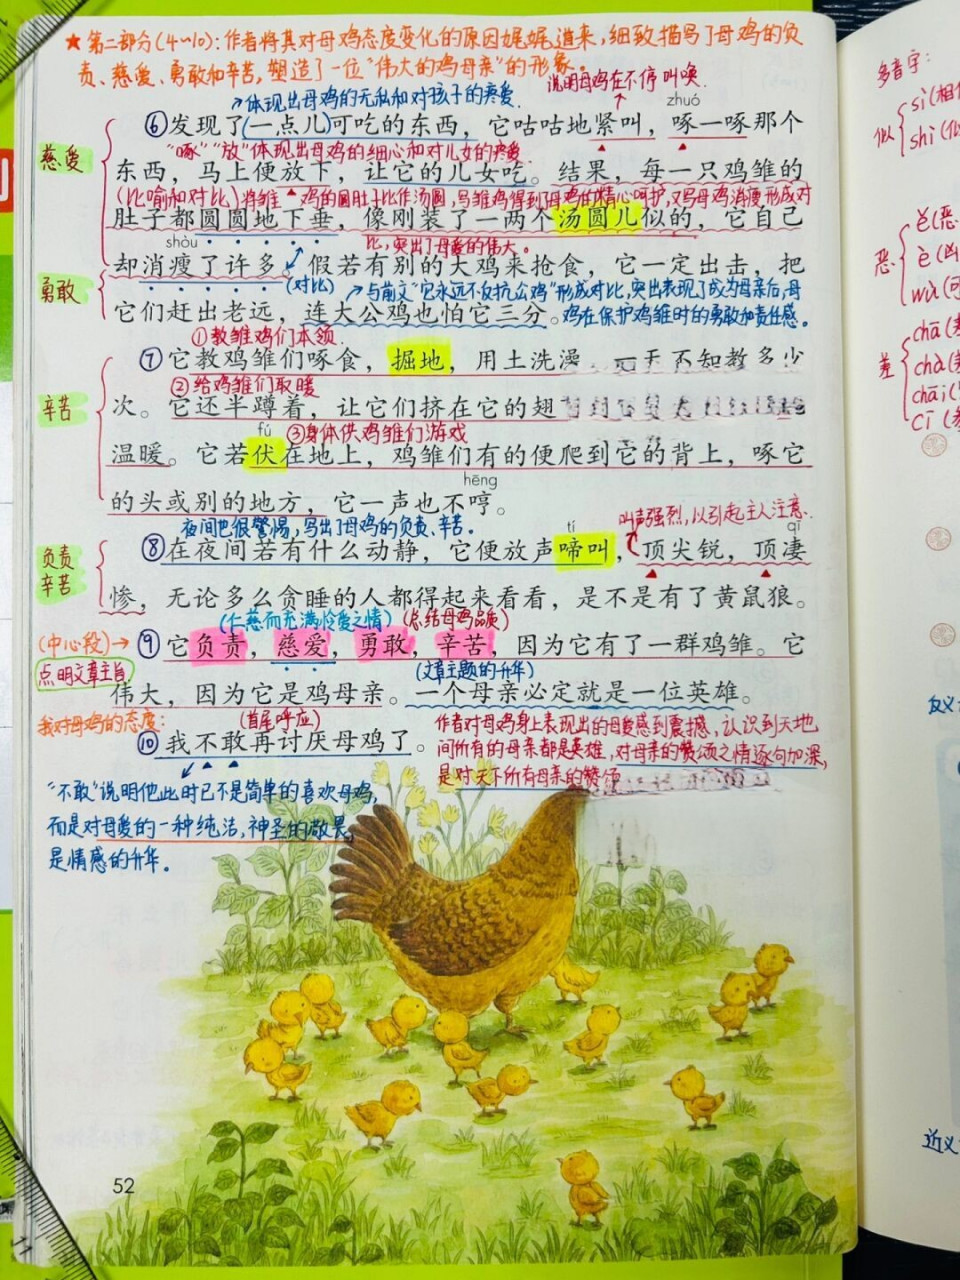 ★第二部分(4~10):作者将其对母鸡态度变化的原因娓娓道来,细致描写了母鸡的负
责、慈爱、勇敢和辛苦,塑造了一位“伟大的鸡母亲”的形象。
说明母鸡在不停叫唤.
体现出母鸡的无私和对孩子的疼爱.
zhuó
⑥发现了(一点儿)可吃的东西，它咕咕地紧叫，啄一啄那个
慈爱
“啄”“放”体现出母鸡的细心和对儿女的疼爱.
东西，马上便放下，让它的儿女吃。结果，每一只鸡雏的
(比喻和对比)将雏鸡的圆肚子比作汤圆,写雏鸡得到母鸡的精心呵护,又与母鸡消瘦形成对
肚子都圆圆地下垂，像刚装了一两个汤圆儿似的，它自己
比,突出了母爱的伟大。
shòu
却消瘦了许多。假若有别的大鸡来抢食，它一定出击，把
勇敢
(对比)
与前文“它永远不反抗公鸡”形成对比,突出表现了成为母亲后,母
它们赶出老远，连大公鸡也怕它三分。
鸡在保护鸡雏时的勇敢和责任感。
①教雏鸡们本领.
⑦它教鸡雏们啄食，掘地，用土洗澡，一天不知教多少
②给鸡雏们取暖
辛苦
次。它还半蹲着，让它们挤在它的翅
fú
③身体供鸡雏们游戏
温暖。它若伏在地上，鸡雏们有的便爬到它的背上，啄它
hēng
的头或别的地方，它一声也不哼。
夜间也很警惕,写出了母鸡的负责、辛苦。
叫声强烈,以引起主人注意.
tí
qī
⑧在夜间若有什么动静，它便放声啼叫，顶尖锐，顶凄
负责
辛苦
惨，无论多么贪睡的人都得起来看看，是不是有了黄鼠狼。
(仁慈而充满怜爱之情)
(总结母鸡品质)
(中心段)→
⑨它负责，慈爱，勇敢，辛苦，因为它有了一群鸡雏。它
点明文章主旨
(文章主题的升华)
伟大，因为它是鸡母亲。一个母亲必定就是一位英雄。
我对母鸡的态度:
(首尾呼应)
⑩我不敢再讨厌母鸡了。
作者对母鸡身上表现出的母爱感到震撼、认识到天地
间所有的母亲都是英雄,对母亲的赞颂之情逐句加深,
是对天下所有母亲的赞颂
“不敢”说明他此时已不是简单的喜欢母鸡,
而是对母爱的一种纯洁,神圣的敬畏,
是情感的升华。
52
多音字:
似
sì(相
shì(似
恶
è(恶
wù(可
差
chā(
chà(
chāi(
cī(
反义
近义